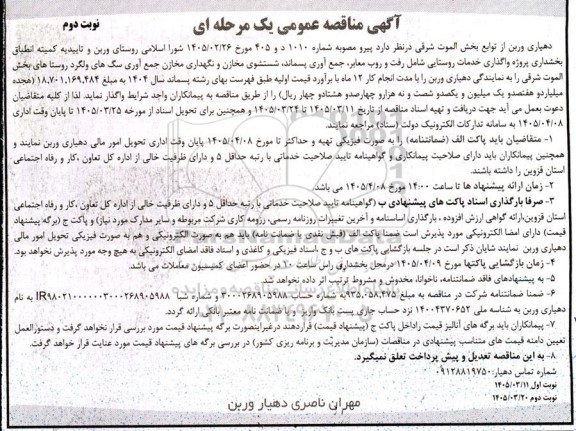 آگهی مناقصه عمومی یک مرحله ای
نوبت دوم
دهیاری وربن از توابع بخش الموت شرقی درنظر دارد پیرو مصوبه شماره ۱۰۱۰ د و ۴۰۵ مورخ ۱۴۰۵/۰۲/۲۶ شورا اسلامی روستای وربن و تاییدیه کمیته انطباق
بخشداری پروژه واگذاری خدمات روستایی شامل رفت و روب معابر، جمع آوری پسماند، شستشوی مخازن و نگهداری مخازن جمع آوری سگ های ولگرد روستا های بخش
الموت شرقی را به نمایندگی دهیاری وربن را با مدت انجام کار ۱۲ ماه با برآورد قیمت اولیه طبق فهرست بهای رشته پسماند سال ۱۴۰۴ به مبلغ ۱۸,۷۰۱,۱۶۹,۴۸۴ (هجده
میلیاردو هفتصدو یک میلیون و یکصدو شصت و نه هزارو چهارصدو هشتادو چهار ریال) را از طریق مناقصه به پیمانکاران واجد شرایط واگذار نماید. لذا از کلیه متقاضیان
دعوت بعمل می آید جهت دریافت و تهیه اسناد مناقصه از تاریخ ۱۴۰۵/۰۳/۱۱ تا ۱۴۰۵/۰۳/۲۴ و همچنین برای تحویل اسناد از مورخه ۱۴۰۵/۰۳/۲۵ تا پایان وقت اداری
۱۴۰۵/۰۴/۰۸ به سامانه تدارکات الکترونیک دولت (ستاد) مراجعه نمایند.
۱- متقاضیان باید پاکت الف (ضمانتنامه) را به صورت فیزیکی تهیه و حداکثر تا مورخ ۱۴۰۵/۰۴/۰۸ پایان وقت اداری تحویل امور مالی دهیاری وربن نمایند و
همچنین پیمانکاران باید دارای صلاحیت پیمانکاری و گواهینامه تایید صلاحیت خدماتی با رتبه حداقل ۵ و دارای ظرفیت خالی از اداره کل تعاون ،کار و رفاه اجتماعی
استان قزوین را داشته باشند.
۲- زمان ارائه پیشنهاد ها تا ساعت ۱۴:۰۰ مورخ ۱۴۰۵/۴/۰۸ می باشد.
۳- صرفا بارگذاری اسناد پاکت های پیشنهادی ب (گواهینامه تایید صلاحیت خدماتی با رتبه حداقل ۵ و دارای ظرفیت خالی از اداره کل تعاون ،کار و رفاه اجتماعی
استان قزوین،ارائه گواهی ارزش افزوده ، بارگذاری اساسنامه و آخرین تغییرات روزنامه رسمی، رزومه کاری شرکت مربوطه و سایر مدارک مورد نیاز) و پاکت ج (برگه پیشنهاد
قیمت) دارای امضا الکترونیکی مورد پذیرش است ضمنا پاکت الف (فیش نقدی یا ضمانت نامه) باید هم به صورت الکترونیکی و هم به صورت فیزیکی تحویل امور مالی
دهیاری وربن نمایند شایان ذکر است در جلسه بازگشایی پاکت های ب و ج ،اسناد فیزیکی و کاغذی و اسناد فاقد امضای الکترونیکی به هیچ وجه مورد پذیرش نخواهد بود.
۴- زمان بازگشایی پاکتها مورخ ۱۴۰۵/۰۴/۰۹ درمحل بخشداری راس ساعت ۱۰ در حضور اعضای کمیسیون معاملات می باشد.
۵- به پیشنهادهای فاقد ضمانتنامه، ناخوانا، مخدوش و مشروط ترتیب اثر داده نخواهد شد.
۶- ضمنا ضمانتنامه شرکت در مناقصه به مبلغ ۹۳۵,۰۵۸,۴۷۵به شماره حساب ۳۰۰۰۲۶۸۹۰۵۹۸۸ و شماره شبا IR۹۸۰۲۱۰۰۰۰۰۰۳۰۰۰۲۶۸۹۰۵۹۸۸ به نام
دهیاری وربن به شناسه ملی ۱۴۰۰۴۳۷۰۶۵۲ نزد حساب جاری پست بانک واریز یا با ضمانت نامه معتبر بانکی ارائه گردد.
۷- پیمانکاران باید برگه های آنالیز قیمت راداخل پاکت ج (پیشنهاد قیمت) قراردهند درغیراینصورت برگه پیشنهاد قیمت مورد بررسی قرار نخواهد گرفت و دستورالعمل
تعیین دامنه قیمت های متناسب پیشنهادی در مناقصات (سازمان مدیریت و برنامه ریزی کشور) در بررسی برگه های پیشنهاد قیمت مورد عنایت قرار خواهد گرفت.
۸- به این مناقصه تعدیل و پیش پرداخت تعلق نمیگیرد.
شماره تماس دهیار: ۰۹۱۲۸۸۱۹۷۵۰
نوبت اول ۱۴۰۵/۰۳/۱۱
نوبت دوم ۱۴۰۵/۰۳/۲۰
مهران ناصری دهیار وربن